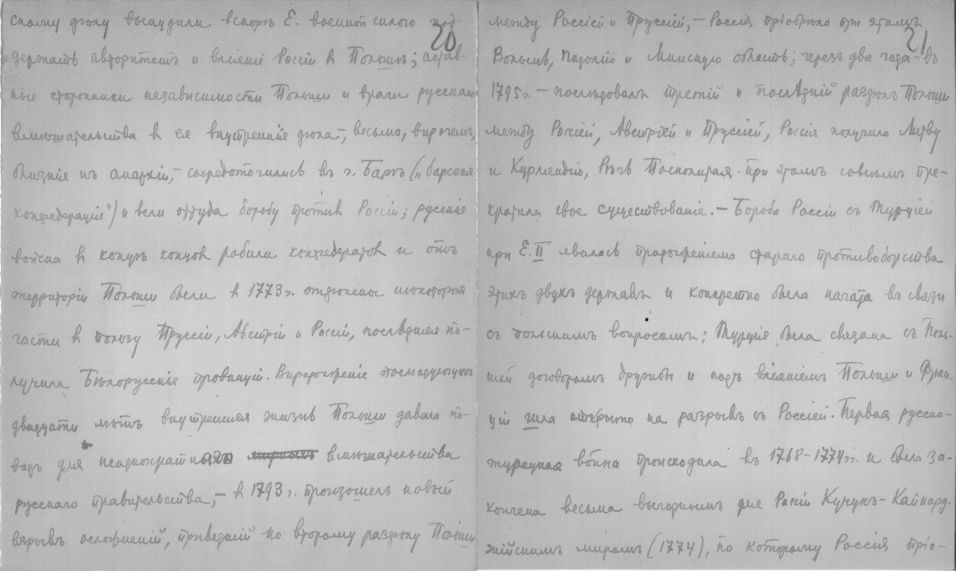 скому дѣлу вынудили вскорѣ Е. военной силою под-
20
держать авторитетъ и вліяніе Россіи въ Польшѣ; актив-
ные сторонники независимости Польши и враги русскаго
вмѣшательства въ ея внутреннія дѣла, весьма, впрочемъ,
близкіе къ анархіи, – сосредоточились въ г. Барѣ („барская
конфедерація") и вели оттуда борьбу противъ Россіи; русскія
войска въ концѣ концовъ разбили конфедератовъ и отъ
территоріи Польши были въ 1773 г. отдѣлены нѣкоторыя
части въ пользу Пруссіи, Австріи и Россіи, послѣдняя по-
лучила Бѣлорусскія провинціи. Въ продолженіе послѣдующихъ
двадцати лѣтъ внутренняя жизнь Польши давала по-
водъ для неоднократнаго вмѣшательства
русскаго правительства, – въ 1793 г. произошелъ новый
взрывъ осложненій, приведшій ко второму раздѣлу Польши
между Россіей и Пруссіей, – Россія пріобрѣла при этомъ
21
Волынь, Подолію и Минскую область; черезъ два года – въ
1795 г. – послѣдовалъ третій и послѣдній раздѣлъ Польши
между Россіей, Австріей и Пруссіей, Россія получила Литву
и Курляндію, Рѣчь Посполитая при этомъ совсѣмъ пре-
кратила свое существованіе. – Борьба Россіи съ Турціей
при Е. II явилась продолженіемъ стараго противоборства
этихъ двухъ державъ и конкретно была начата въ связи
съ польскимъ вопросомъ; Турція была связана съ Поль-
шей договоромъ дружбы и подъ вліяніемъ Польши и Фран-
ціи шла открыто на разрывъ съ Россіей. Первая русско-
турецкая война происходила въ 1768-1774 гг. и была за-
кончена весьма выгоднымъ для Россіи Кучукъ-Кайнард-
жійскимъ миромъ (1774), по которому Россія пріо-